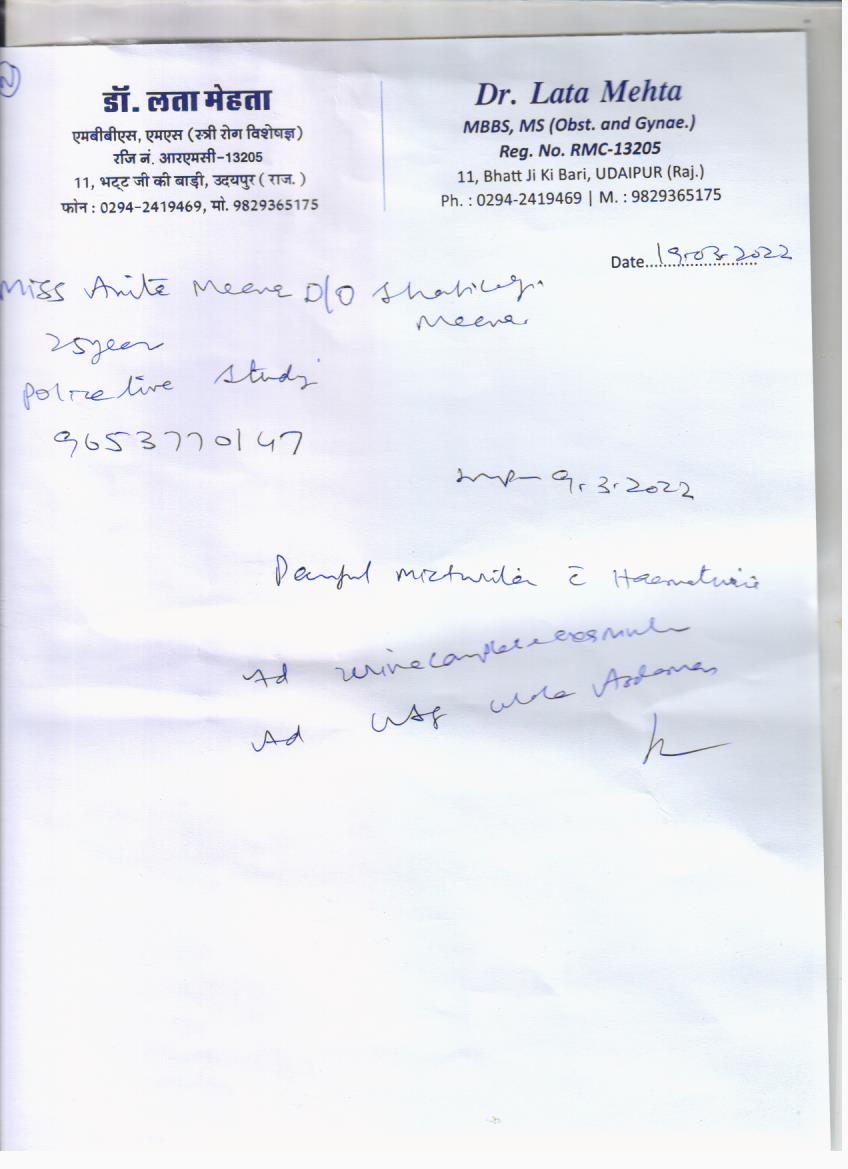 डॉ. लता मेहता
एमबीबीएस, एमएस (स्त्री रोग विशेषज्ञ)
रजि नं. आरएमसी-13205
11, भट्ट जी की बाड़ी, उदयपुर ( राज. )
फोन : 0294-2419469, मो. 9829365175
Dr. Lata Mehta
MBBS, MS (Obst. and Gynae.)
Reg. No. RMC-13205
11, Bhatt Ji Ki Bari, UDAIPUR (Raj.)
Ph. : 0294-2419469 | M. : 9829365175
Date 19.03.2022
Miss Anita Meena D/O
Meena
25 year
study
9653770147
Lmp- 9.3.2022
Painful micturition c̄ Haematuria
Ad urine complete
Ad USG whole Abdomen